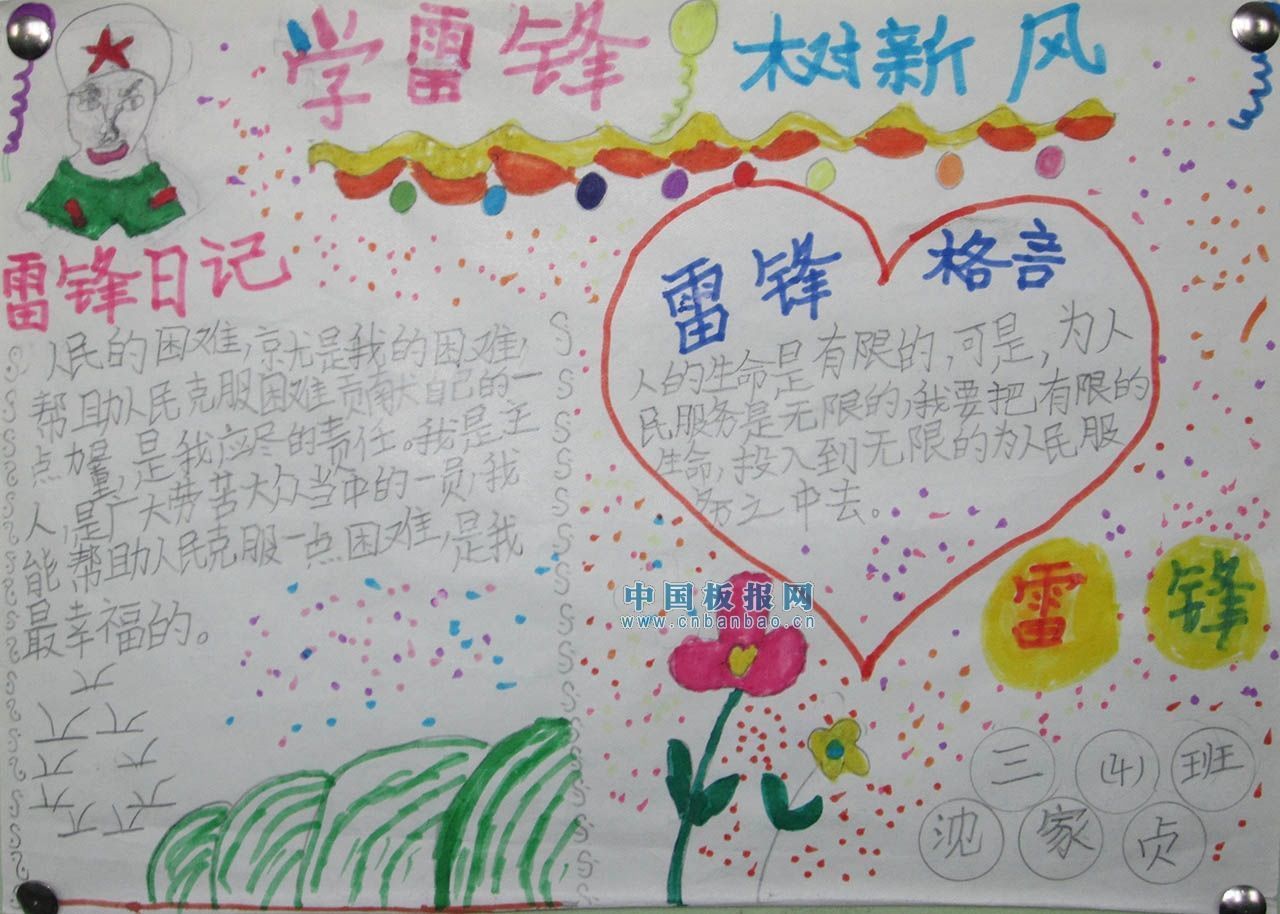 学雷锋 树新风
雷锋日记
人民的困难,就是我的困难,
帮助人民克服困难贡献自己的一
点力量,是我应尽的责任。我是主
人,是广大劳苦大众当中的一员,我
能帮助人民克服一点困难,是我
最幸福的。
雷锋 格言
人的生命是有限的,可是,为人
民服务是无限的,我要把有限的
生命,投入到无限的为人民服
务之中去。
中国板报网
www.cnbanbao.cn
雷 锋
三 (4) 班
沈 家 贞